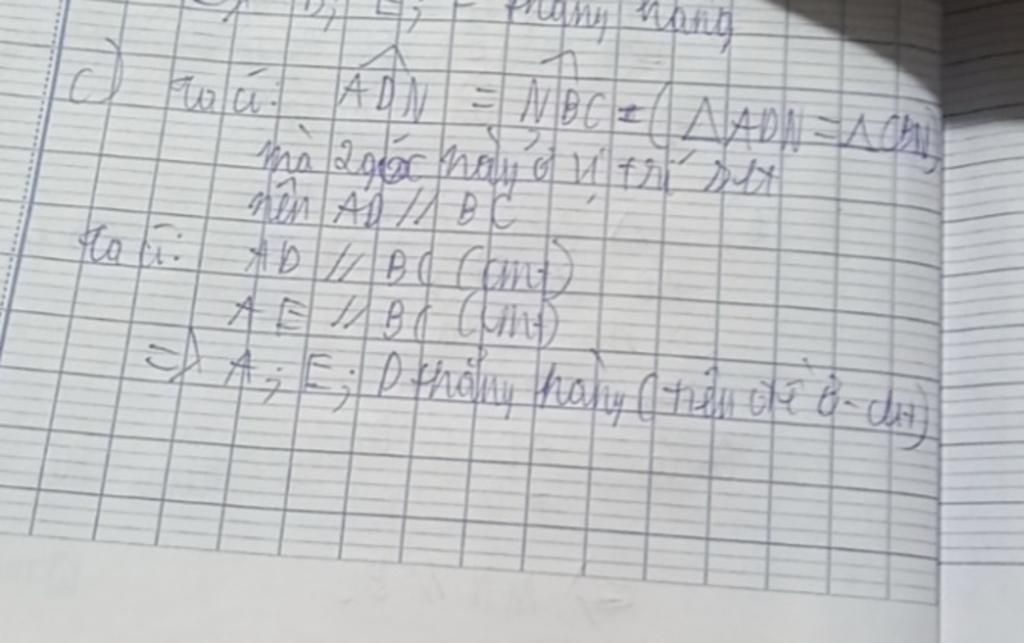 D; E; thẳng hàng
c) ta có: ADN = NBC = (△ADN = △CBN)
mà 2 góc này ở vị trí slt
nên AD // BC
ta có: AD // BC (cmt)
AE // BC (cmt)
=> A; E; D thẳng hàng (tiên đề Ơ-clit)